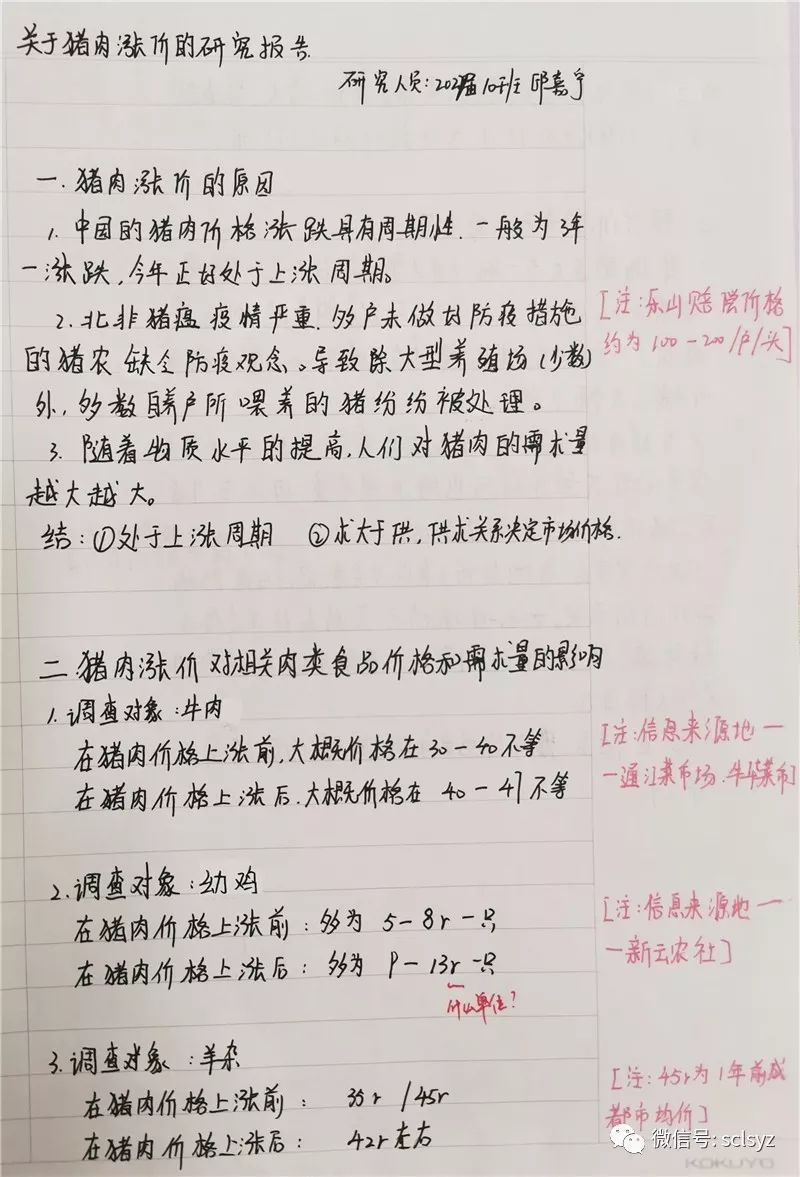 关于猪肉涨价的研究报告.
研究人员:202届10班 邱嘉宁
一.猪肉涨价的原因
1.中国的猪肉价格涨跌具有周期性.一般为3年
一涨跌,今年正好处于上涨周期。
2.北非猪瘟疫情严重.多户未做好防疫措施
的猪农缺乏防疫观念。导致除大型养殖场(少数)
外,多数自养户所喂养的猪纷纷被处理。
3.随着物质水平的提高,人们对猪肉的需求量
越大越大。
结:①处于上涨周期 ②求大于供,供求关系决定市场价格.
[注:乐山赔偿价格
约为100-200/户/头]
二 猪肉涨价对相关肉类食品价格和需求量的影响
1.调查对象:牛肉
在猪肉价格上涨前,大概价格在30-40不等
在猪肉价格上涨后.大概价格在 40-47不等
[注:信息来源地—
—通江菜市场.牛华菜市]
2.调查对象:幼鸡
在猪肉价格上涨前:多为 5-8r一只
在猪肉价格上涨后:多为 9-13r一只
什么单位?
[注:信息来源地—
—新云农社]
3.调查对象:羊杂
在猪肉价格上涨前: 35r /45r
在猪肉价格上涨后: 42r左右
[注:45r为1年前成
都市均价]
微信号: sclsyz
KOKUYO